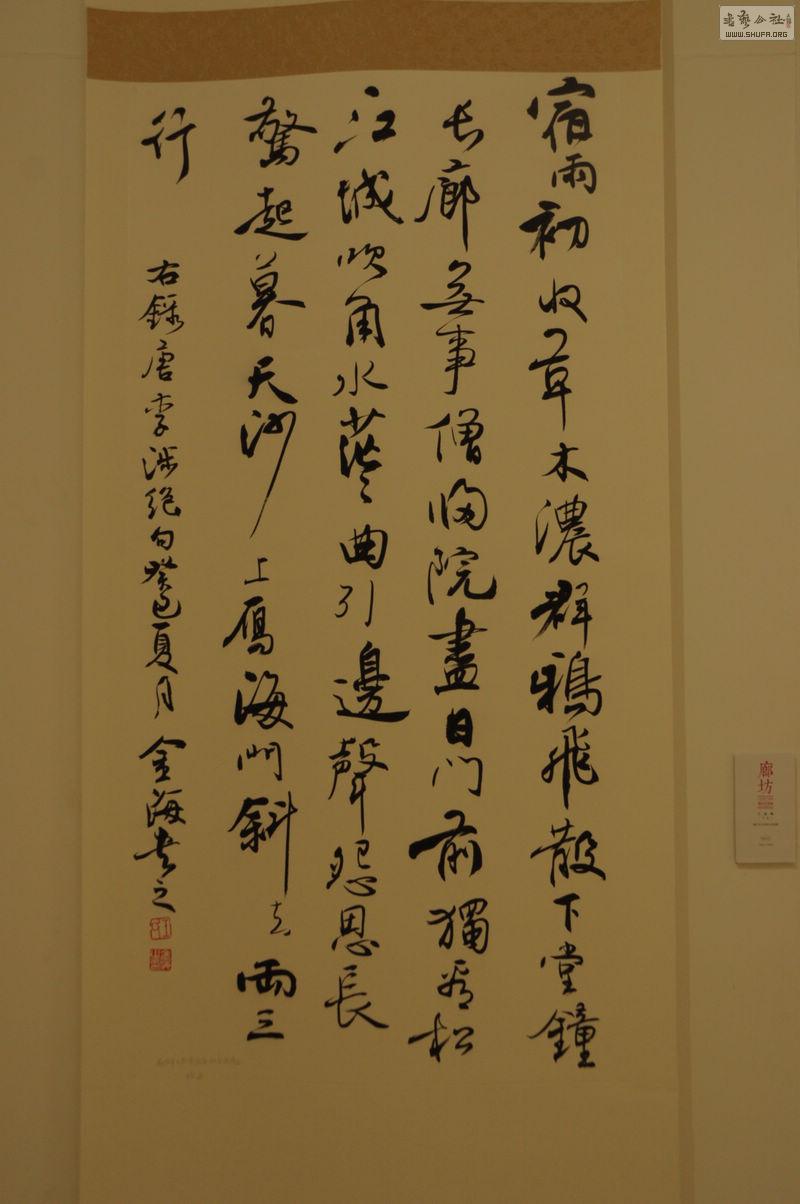 宿雨初收草木濃群鴉飛散下堂鐘
長廊無事僧歸院盡日門前獨看松
江城吹角水茫茫曲引邊聲怨思長
驚起暮天沙上鴈海門斜去兩三
行
右錄唐李涉絕句癸巳夏月金海書之
廊坊
書藝公社
WWW.SHUFA.ORG